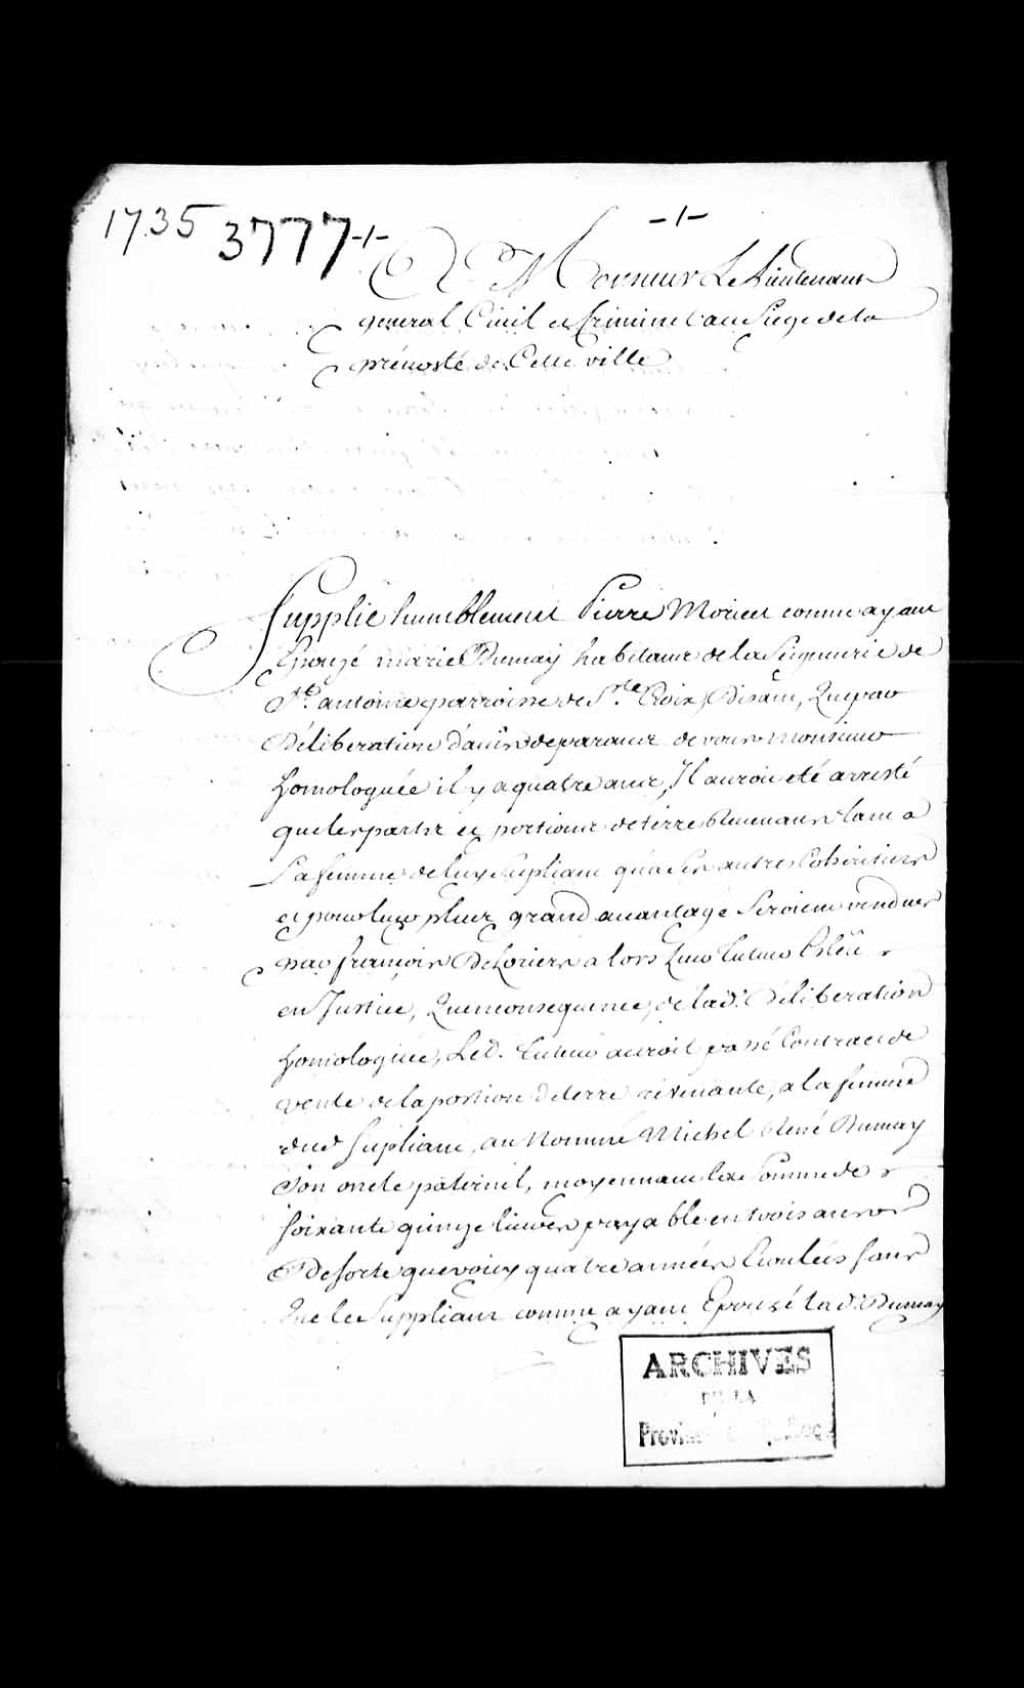 1735 3777 -/- -/-
A Monsieur Le Lieutenant
general Civil et Criminel au Siege de la
prévosté de Cette ville
Supplie humblement Pierre Moriset comme ayant
Epouzé marie Dumay habitant de la Seigneurie de
St. antoine parroisse de Ste. Croix, Disant, Que par
Déliberation d'avis de parans de vous monsieur
homologuée il y a quatre ans, Il auroit eté arresté
que les parts et portions de terre Revenans tant a
La femme de luy Supliant qu'a Ses autres Cohéritiers
et pour leur plus grand avantage Seroient vendues
par françois Desloriers a lors Leur tuteur Esleu
en Justice, Qu'en consequence, de la d. Déliberation
homologuée, Le d. tuteur auroit passé Contract de
vente de la portion de terre revenante, a la femme
dud Supliant, au Nommé Michel René Dumay
Son oncle paternel, moyennant la Somme de
Soixante quinze livres payable en trois ans
De sorte que voicy quatre années Ecoulées sans
Que le Suppliant comme ayant Epousé la d. Dumay
ARCHIVES
DE LA
Province de Québec